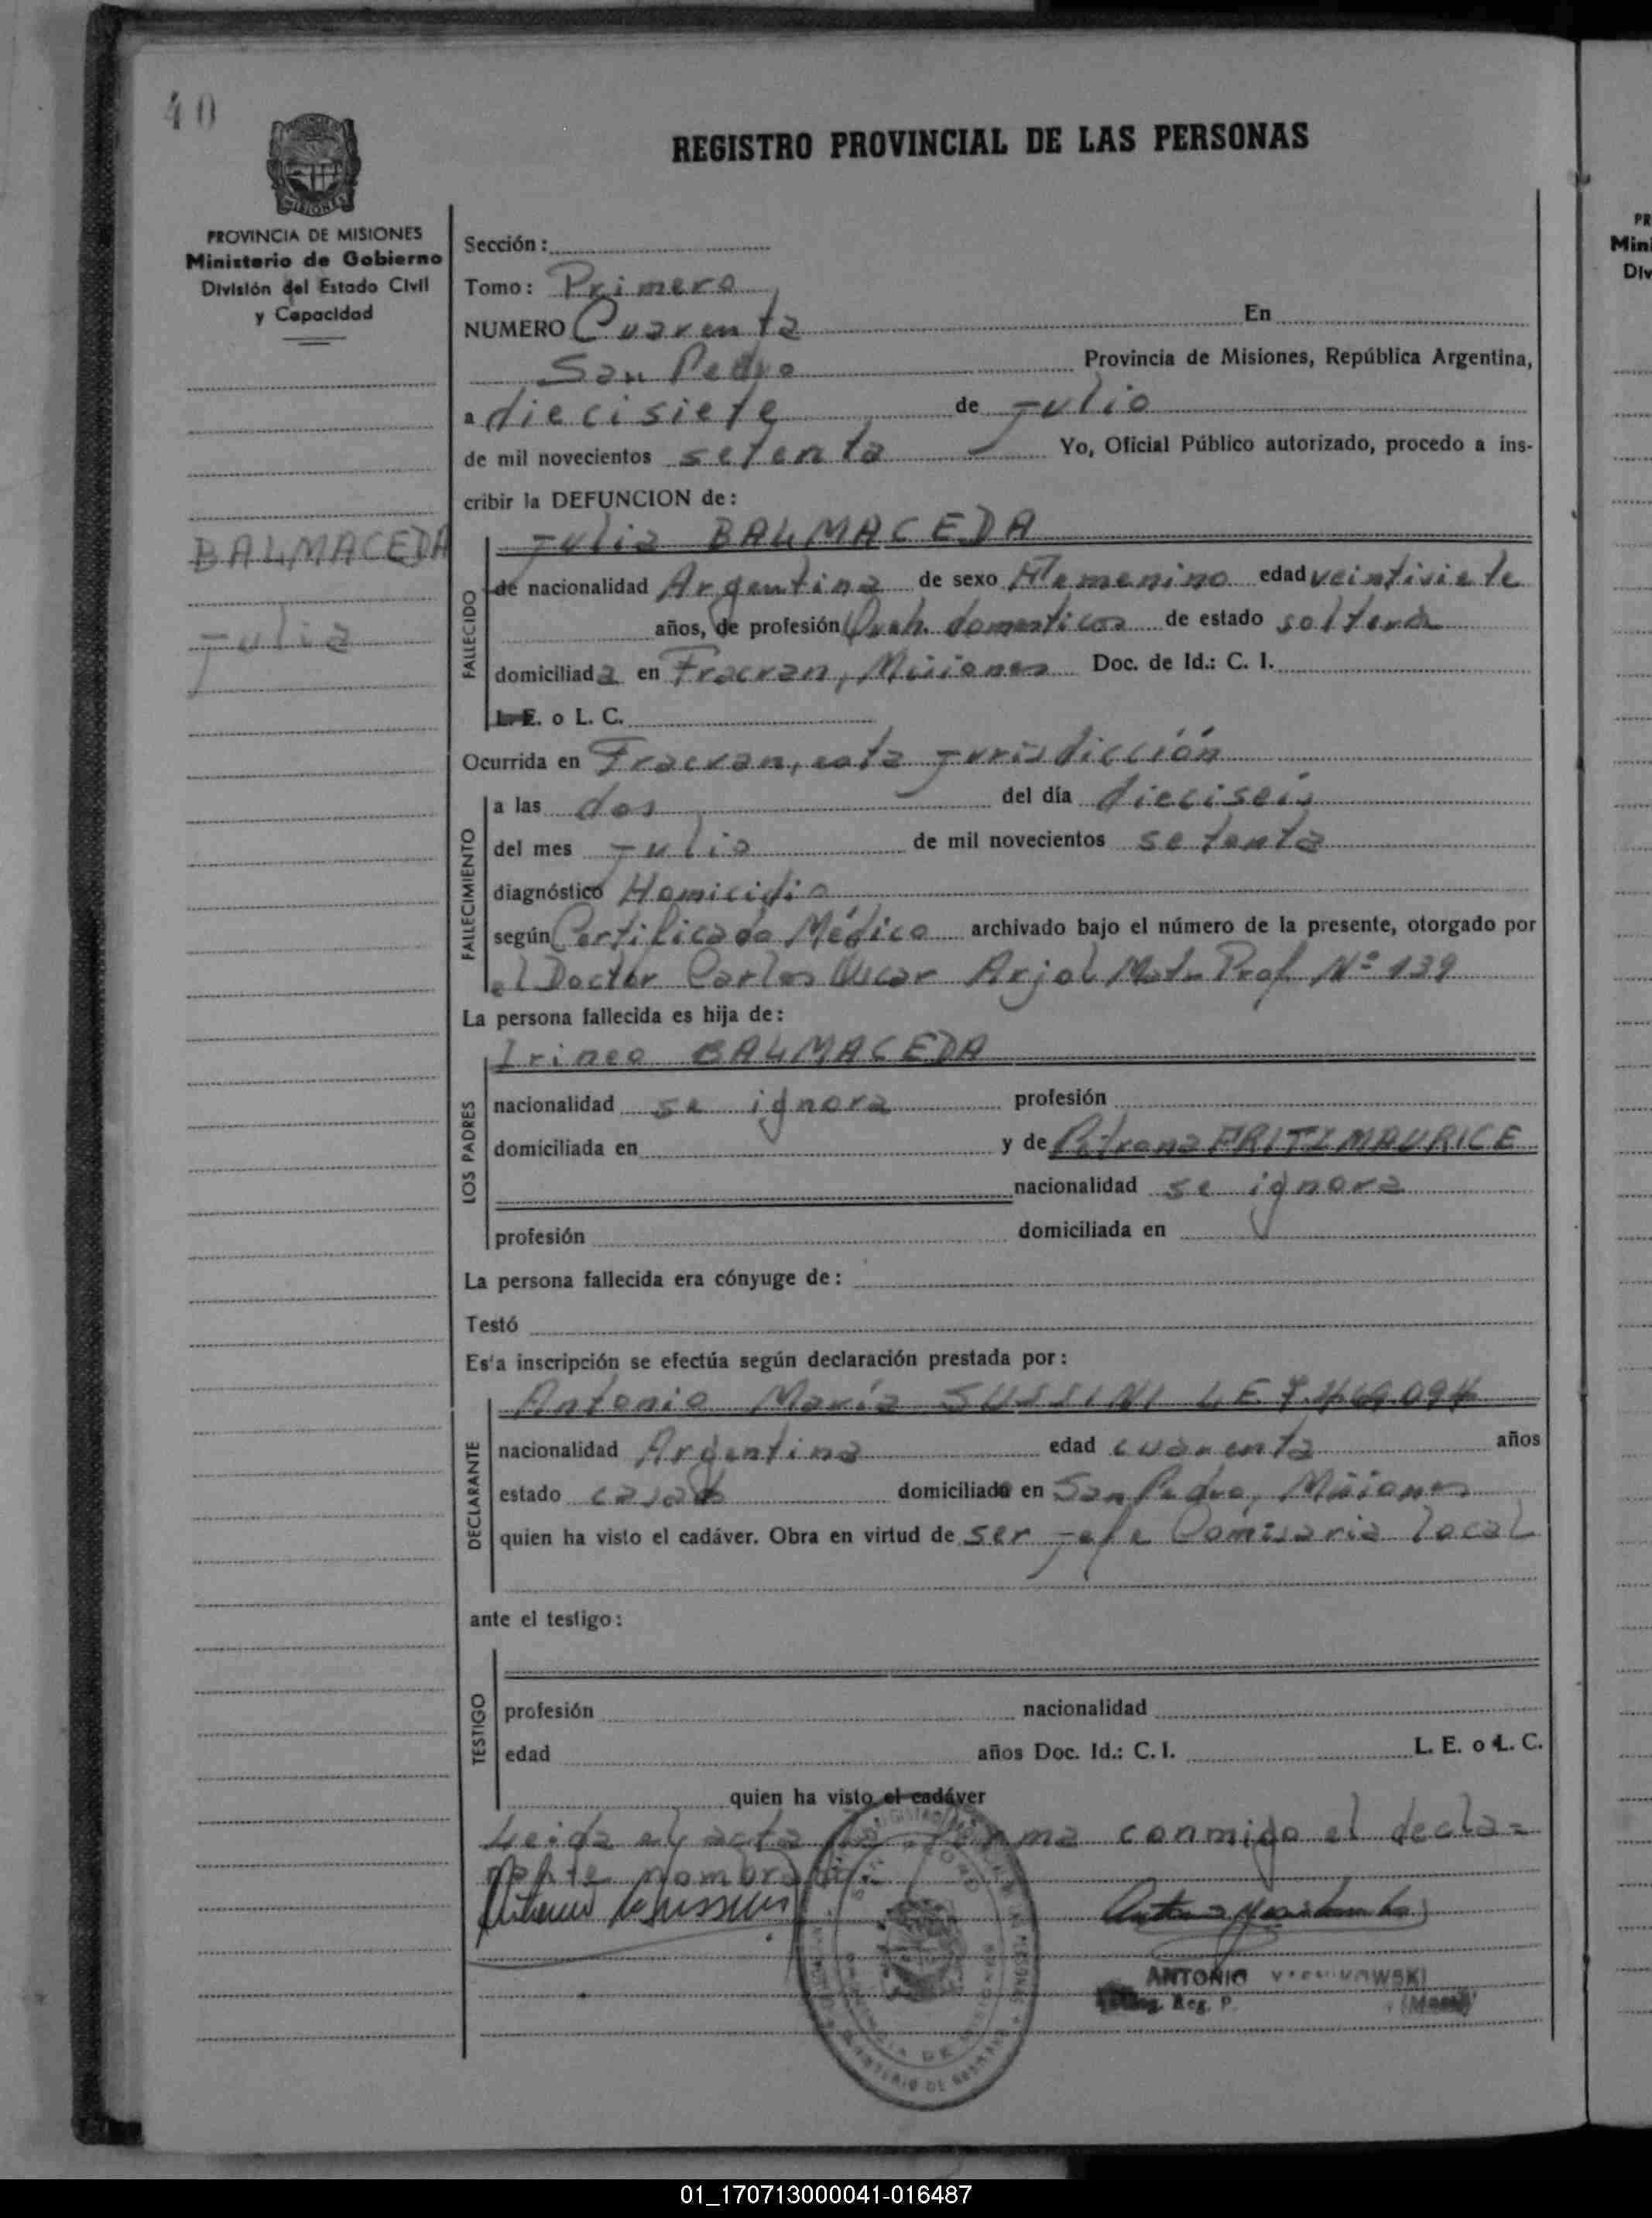 40
REGISTRO PROVINCIAL DE LAS PERSONAS
PROVINCIA DE MISIONES
Ministerio de Gobierno
División del Estado Civil
y Capacidad
BALMACEDA
Julia
Sección:
Tomo: Primero
NUMERO Cuarenta En
San Pedro Provincia de Misiones, República Argentina,
a diecisiete de Julio
de mil novecientos setenta Yo, Oficial Público autorizado, procedo a ins-
cribir la DEFUNCION de:
FALLECIDO
Julia BALMACEDA
de nacionalidad Argentina de sexo Femenino edad veintisiete
años, de profesión Queh. domesticos de estado soltera
domiciliada en Fracran, Misiones Doc. de Id.: C. I.
L. E. o L. C.
Ocurrida en Fracran, esta jurisdicción
FALLECIMIENTO
a las dos del día dieciseis
del mes Julio de mil novecientos setenta
diagnóstico Homicidio
según Certificado Médico archivado bajo el número de la presente, otorgado por
el Doctor Carlos Oscar Arjol Mat. Prof. Nº 139
La persona fallecida es hija de:
LOS PADRES
Irineo BALMACEDA
nacionalidad se ignora profesión
domiciliada en y de Petrona FRITZMAURICE
nacionalidad se ignora
profesión domiciliada en
La persona fallecida era cónyuge de:
Testó
Es'a inscripción se efectúa según declaración prestada por:
DECLARANTE
Antonio María SUSSINI L.E. 7.469.094
nacionalidad Argentina edad cuarenta años
estado casado domiciliado en San Pedro, Misiones
quien ha visto el cadáver. Obra en virtud de ser Jefe Comisaria local
ante el testigo:
TESTIGO
profesión nacionalidad
edad años Doc. Id.: C. I. L. E. o L. C.
quien ha visto el cadáver
Leida el acta la firma conmigo el decla=
rante nombrado.
ANTONIO
Reg. P.
01_170713000041-016487